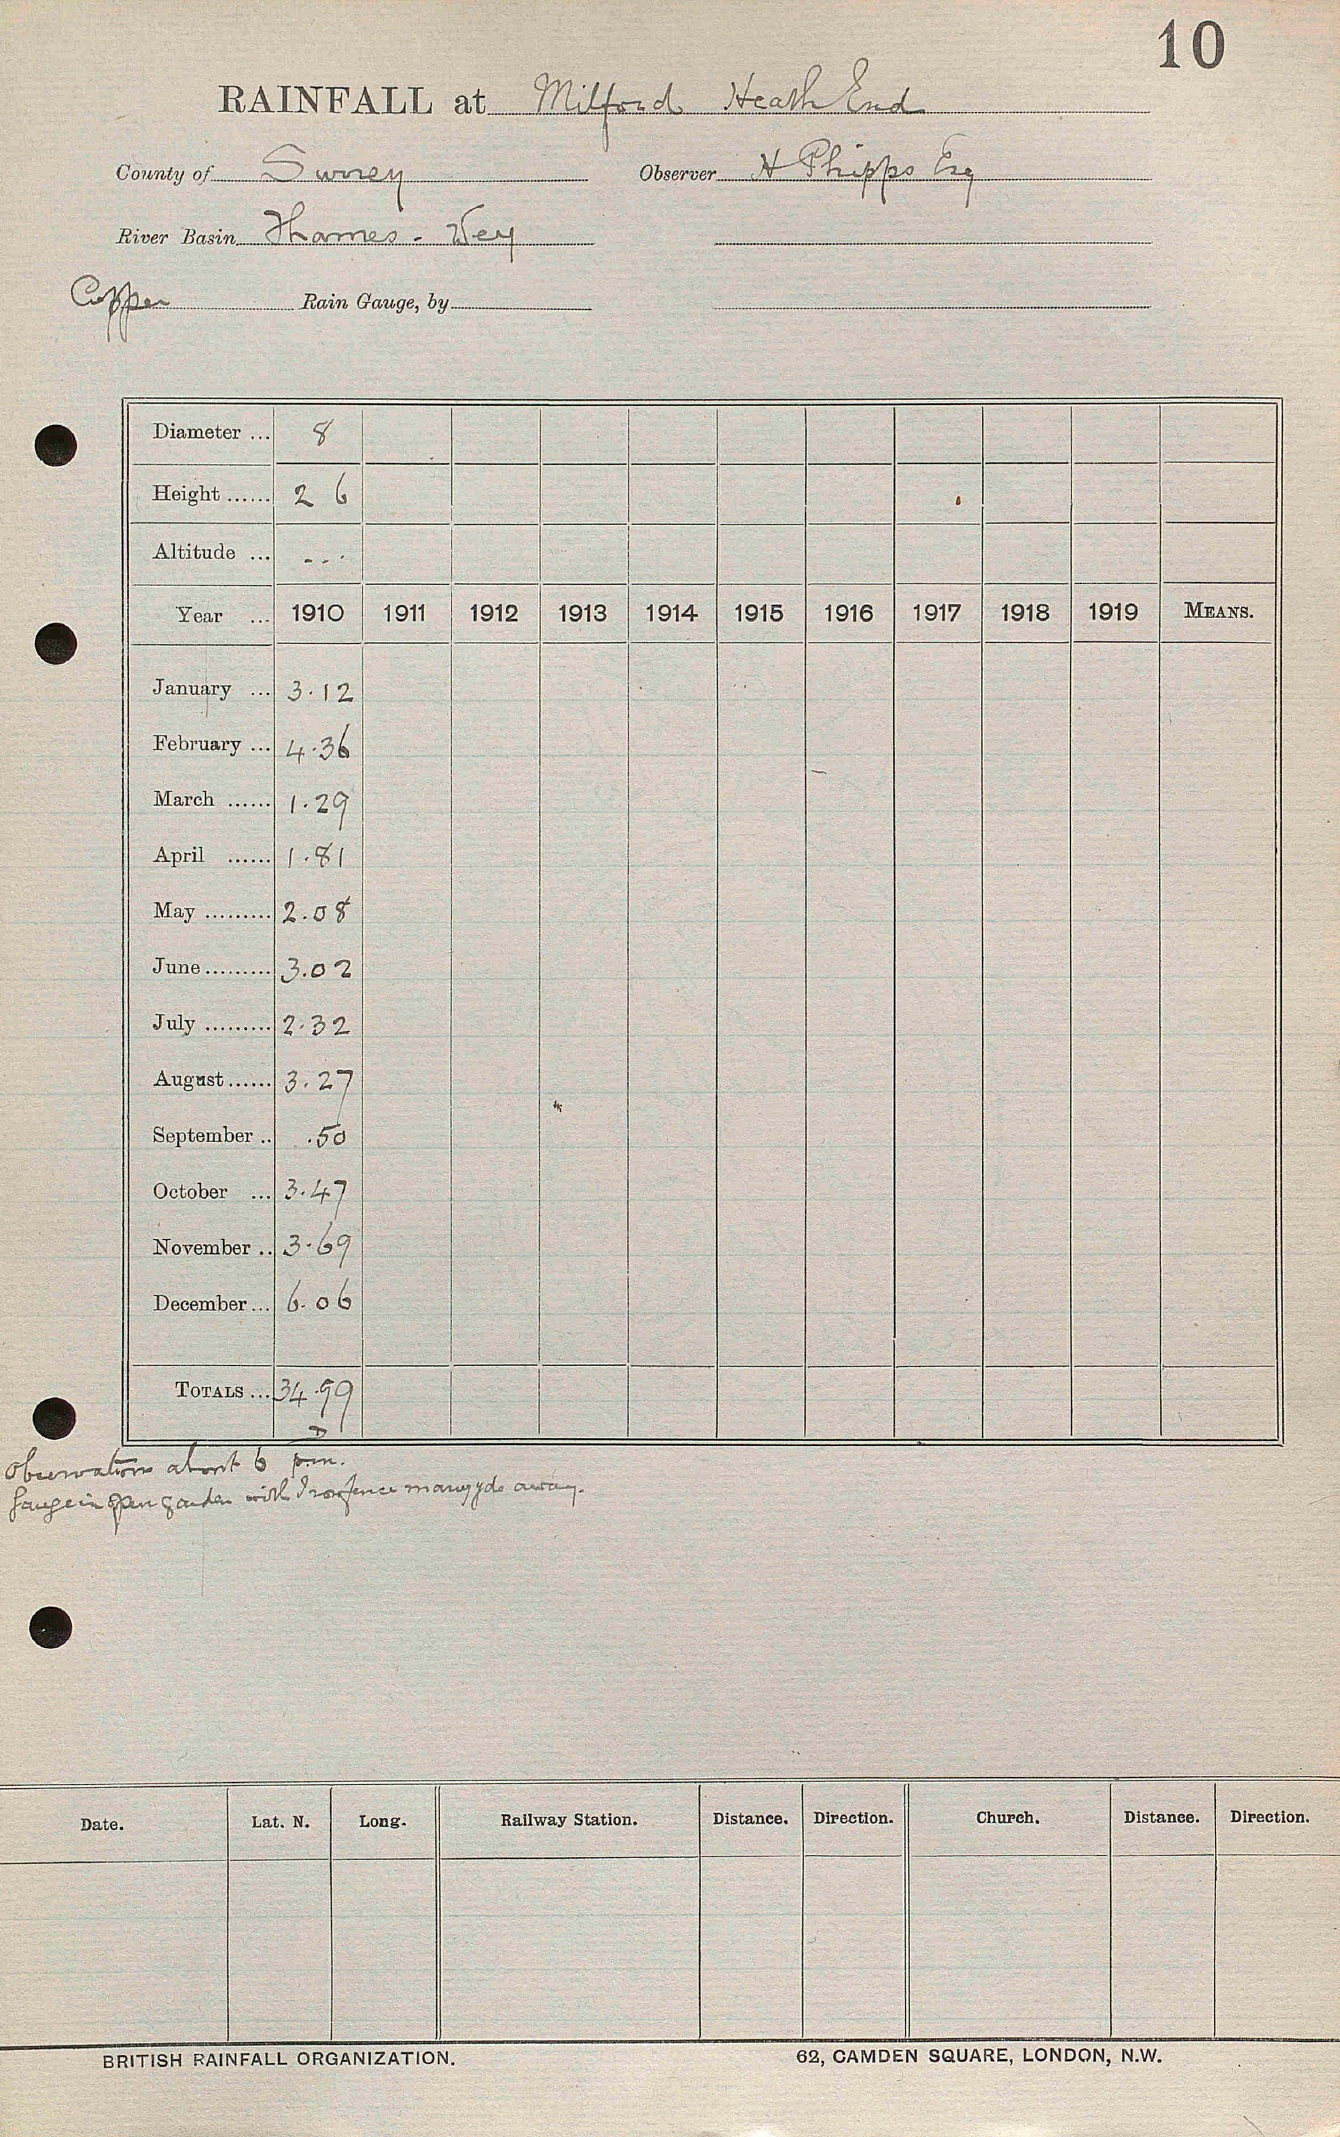 10
RAINFALL at Milford Heath End
County of Surrey Observer H Phipps Esq
River Basin Thames - Wey
Copper Rain Gauge, by
Diameter ... 8
Height ...... 2 6
Altitude ... - - -
Year ... 1910 1911 1912 1913 1914 1915 1916 1917 1918 1919 MEANS.
January ... 3.12
February ... 4.36
March ...... 1.29
April ...... 1.81
May ......... 2.08
June ......... 3.02
July ......... 2.32
August ...... 3.27
September .. .50
October ... 3.47
November .. 3.69
December ... 6.06
TOTALS ... 34.99
D
Observations about 6 p.m.
Gauge in open garden with Iron fence many yds away.
Date. Lat. N. Long. Railway Station. Distance. Direction. Church. Distance. Direction.
BRITISH RAINFALL ORGANIZATION. 62, CAMDEN SQUARE, LONDON, N.W.